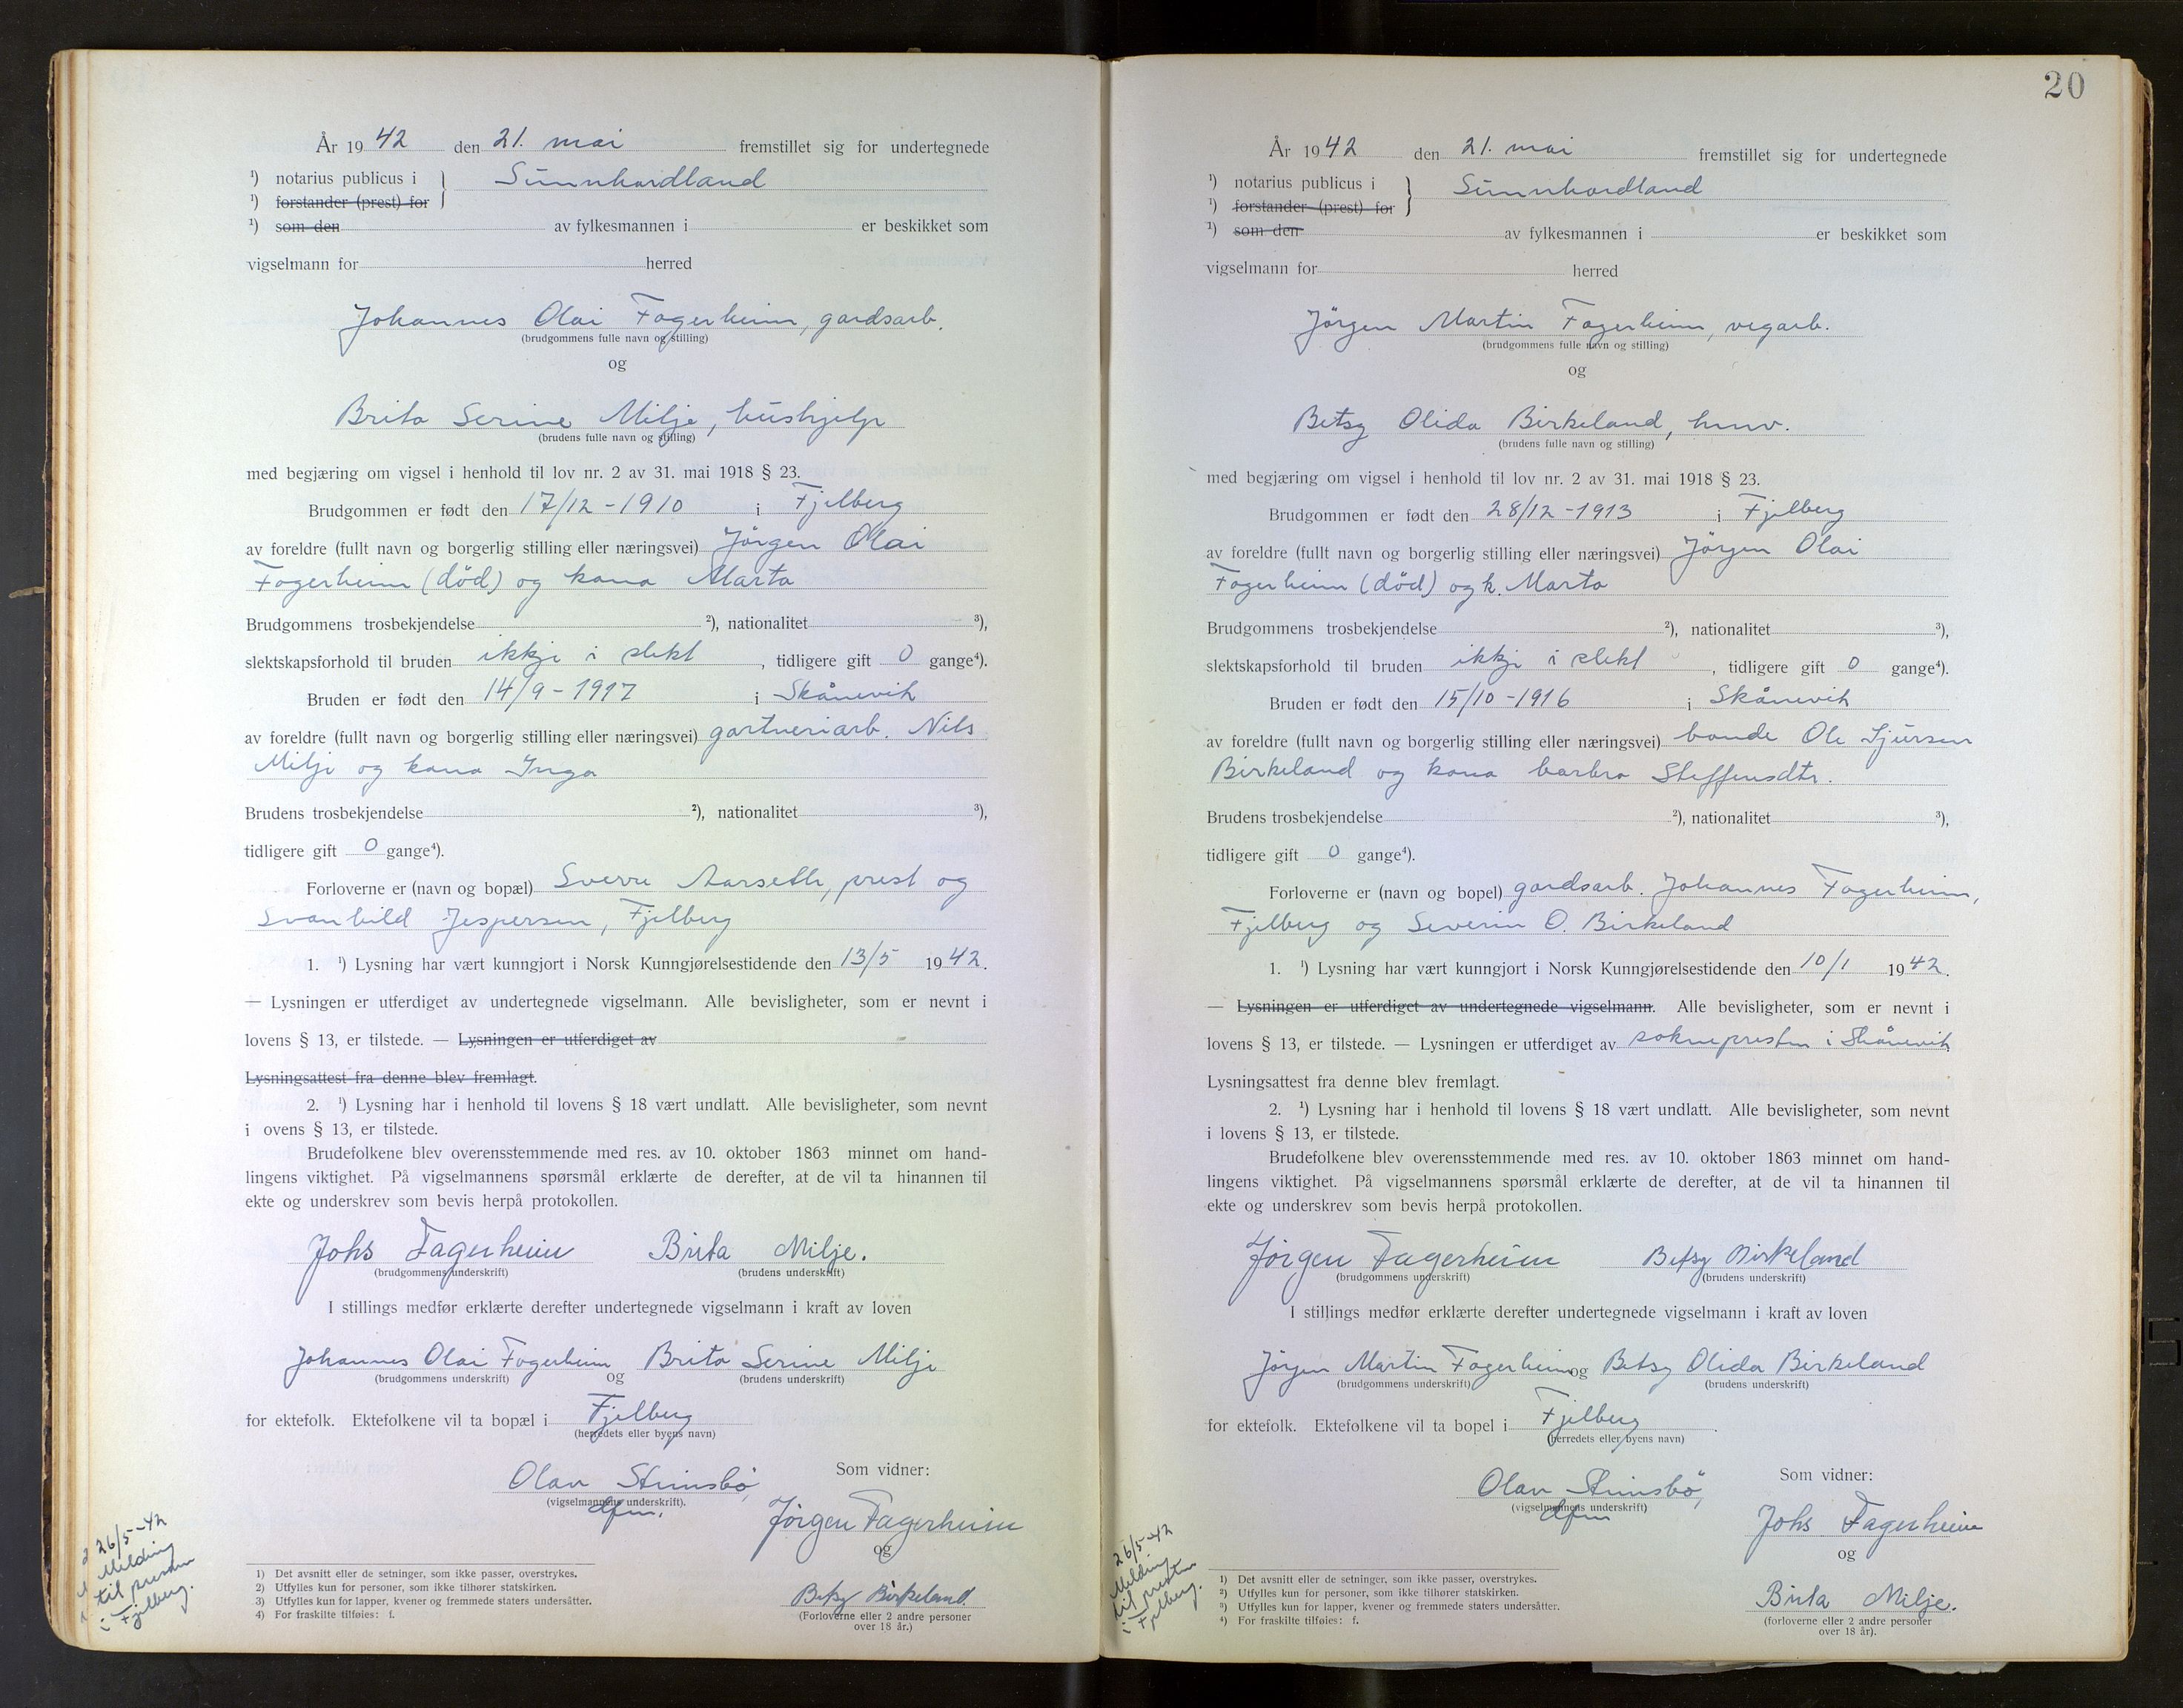 År 1942 den 21. mai fremstillet sig for undertegnede
¹) notarius publicus i } Sunnhordland
¹) forstander (prest) for
¹) som den av fylkesmannen i er beskikket som
vigselmann for herred
Johannes Olai Fagerheim, gardsarb.
(brudgommens fulle navn og stilling)
og
Brita Serine Milje, hushjelp
(brudens fulle navn og stilling)
med begjæring om vigsel i henhold til lov nr. 2 av 31. mai 1918 § 23.
Brudgommen er født den 17/12-1910 i Fjelberg
av foreldre (fullt navn og borgerlig stilling eller næringsvei) Jörgen Olai
Fagerheim (död) og kona Marta
Brudgommens trosbekjendelse ²), nationalitet ³),
slektskapsforhold til bruden ikkje i slekt, tidligere gift 0 gange⁴).
Bruden er født den 14/9-1917 i Skånevik
av foreldre (fullt navn og borgerlig stilling eller næringsvei) gartneriarb. Nils
Milje og kona Inga
Brudens trosbekjendelse ²), nationalitet ³),
tidligere gift 0 gange⁴).
Forloverne er (navn og bopæl) Sverre Aarseth, prest og
Svanhild Jespersen, Fjelberg
1. ¹) Lysning har vært kunngjort i Norsk Kunngjørelsestidende den 13/5 1942.
— Lysningen er utferdiget av undertegnede vigselmann. Alle bevisligheter, som er nevnt i
lovens § 13, er tilstede. — Lysningen er utferdiget av
Lysningsattest fra denne blev fremlagt.
2. ¹) Lysning har i henhold til lovens § 18 vært undlatt. Alle bevisligheter, som nevnt
i ovens § 13, er tilstede.
Brudefolkene blev overensstemmende med res. av 10. oktober 1863 minnet om hand-
lingens viktighet. På vigselmannens spørsmål erklærte de derefter, at de vil ta hinannen til
ekte og underskrev som bevis herpå protokollen.
Johs Fagerheim Brita Milje.
(brudgommens underskrift) (brudens underskrift)
I stillings medfør erklærte derefter undertegnede vigselmann i kraft av loven
Johannes Olai Fagerheim og Brita Serine Milje
(brudgommens underskrift) (brudens underskrift)
for ektefolk. Ektefolkene vil ta bopæl i Fjelberg
(herredets eller byens navn)
Olav Steinsbø,
(vigselmannens underskrift).
dfm.
Som vidner:
Jørgen Fagerheim
og
Betsy Birkeland
(Forloverne eller 2 andre personer
over 18 år.)
26/5-42
Melding
til presten
i Fjelberg.
1) Det avsnitt eller de setninger, som ikke passer, overstrykes.
2) Utfylles kun for personer, som ikke tilhører statskirken.
3) Utfylles kun for lapper, kvener og fremmede staters undersåtter.
4) For fraskilte tilføies: f.
20
År 1942 den 21. mai fremstillet sig for undertegnede
¹) notarius publicus i } Sunnhordland
¹) forstander (prest) for
¹) som den av fylkesmannen i er beskikket som
vigselmann for herred
Jörgen Martin Fagerheim, vegarb.
(brudgommens fulle navn og stilling)
og
Betsy Olida Birkeland, hmv.
(brudens fulle navn og stilling)
med begjæring om vigsel i henhold til lov nr. 2 av 31. mai 1918 § 23.
Brudgommen er født den 28/12-1913 i Fjelberg
av foreldre (fullt navn og borgerlig stilling eller næringsvei) Jörgen Olai
Fagerheim (död) og k. Marta
Brudgommens trosbekjendelse ²), nationalitet ³),
slektskapsforhold til bruden ikkje i slekt, tidligere gift 0 gange⁴).
Bruden er født den 15/10-1916 i Skånevik
av foreldre (fullt navn og borgerlig stilling eller næringsvei) bonde Ole Sjursen
Birkeland og kona barbra Steffensdtr.
Brudens trosbekjendelse ²), nationalitet ³),
tidligere gift 0 gange⁴).
Forloverne er (navn og bopel) gardsarb. Johannes Fagerheim,
Fjelberg og Severin O. Birkeland
1. ¹) Lysning har vært kunngjort i Norsk Kunngjørelsestidende den 10/1 1942.
— Lysningen er utferdiget av undertegnede vigselmann. Alle bevisligheter, som er nevnt i
lovens § 13, er tilstede. — Lysningen er utferdiget av soknepresten i Skånevik
Lysningsattest fra denne blev fremlagt.
2. ¹) Lysning har i henhold til lovens § 18 vært undlatt. Alle bevisligheter, som nevnt
i lovens § 13, er tilstede.
Brudefolkene blev overensstemmende med res. av 10. oktober 1863 minnet om hand-
lingens viktighet. På vigselmannens spørsmål erklærte de derefter, at de vil ta hinannen til
ekte og underskrev som bevis herpå protokollen.
Jørgen Fagerheim Betsy Birkeland
(brudgommens underskrift) (brudens underskrift)
I stillings medfør erklærte derefter undertegnede vigselmann i kraft av loven
Jörgen Martin Fagerheim og Betsy Olida Birkeland
(brudgommens underskrift) (brudens underskrift)
for ektefolk. Ektefolkene vil ta bopel i Fjelberg.
(herredets eller byens navn)
Olav Steinsbø,
(vigselmannens underskrift)
dfm
Som vidner:
Johs Fagerheim
og
Brita Milje.
(forloverne eller 2 andre personer
over 18 år).
26/5-42
Melding
til presten
i Fjelberg.
¹) Det avsnitt eller de setninger, som ikke passer, overstrykes.
²) Utfylles kun for personer, som ikke tilhører statskirken.
³) Utfylles kun for lapper, kvener og fremmede staters undersåtter.
⁴) For fraskilte tilføies: f.